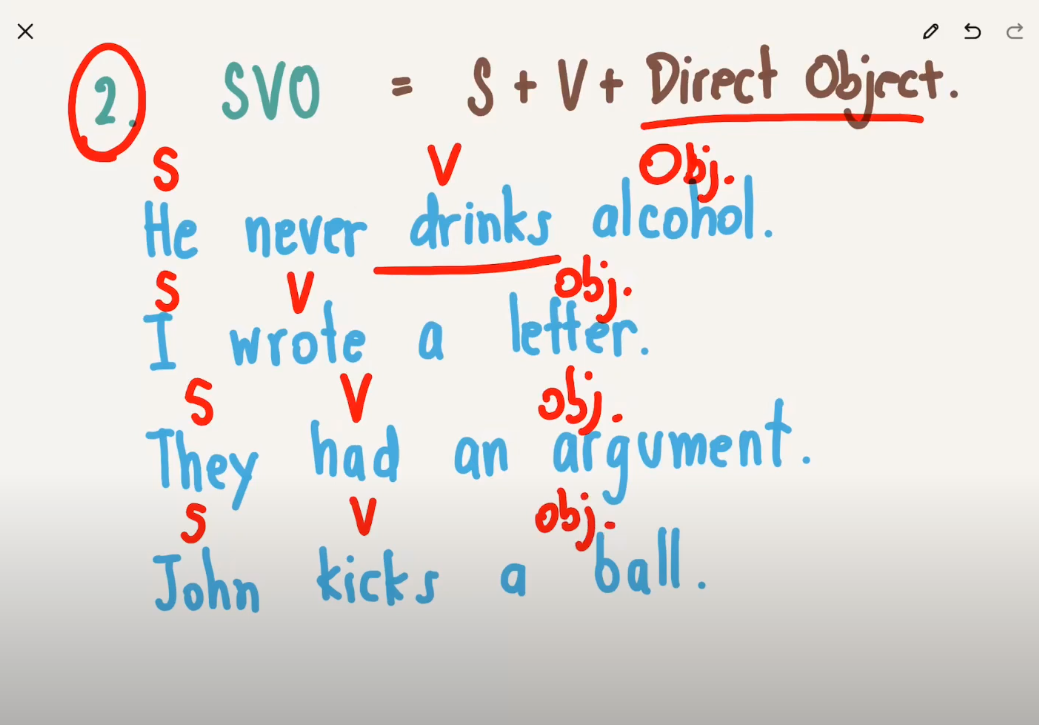 2. SVO = S + V + Direct Object.
S V Obj.
He never drinks alcohol.
S V obj.
I wrote a letter.
S V obj.
They had an argument.
S V obj.
John kicks a ball.